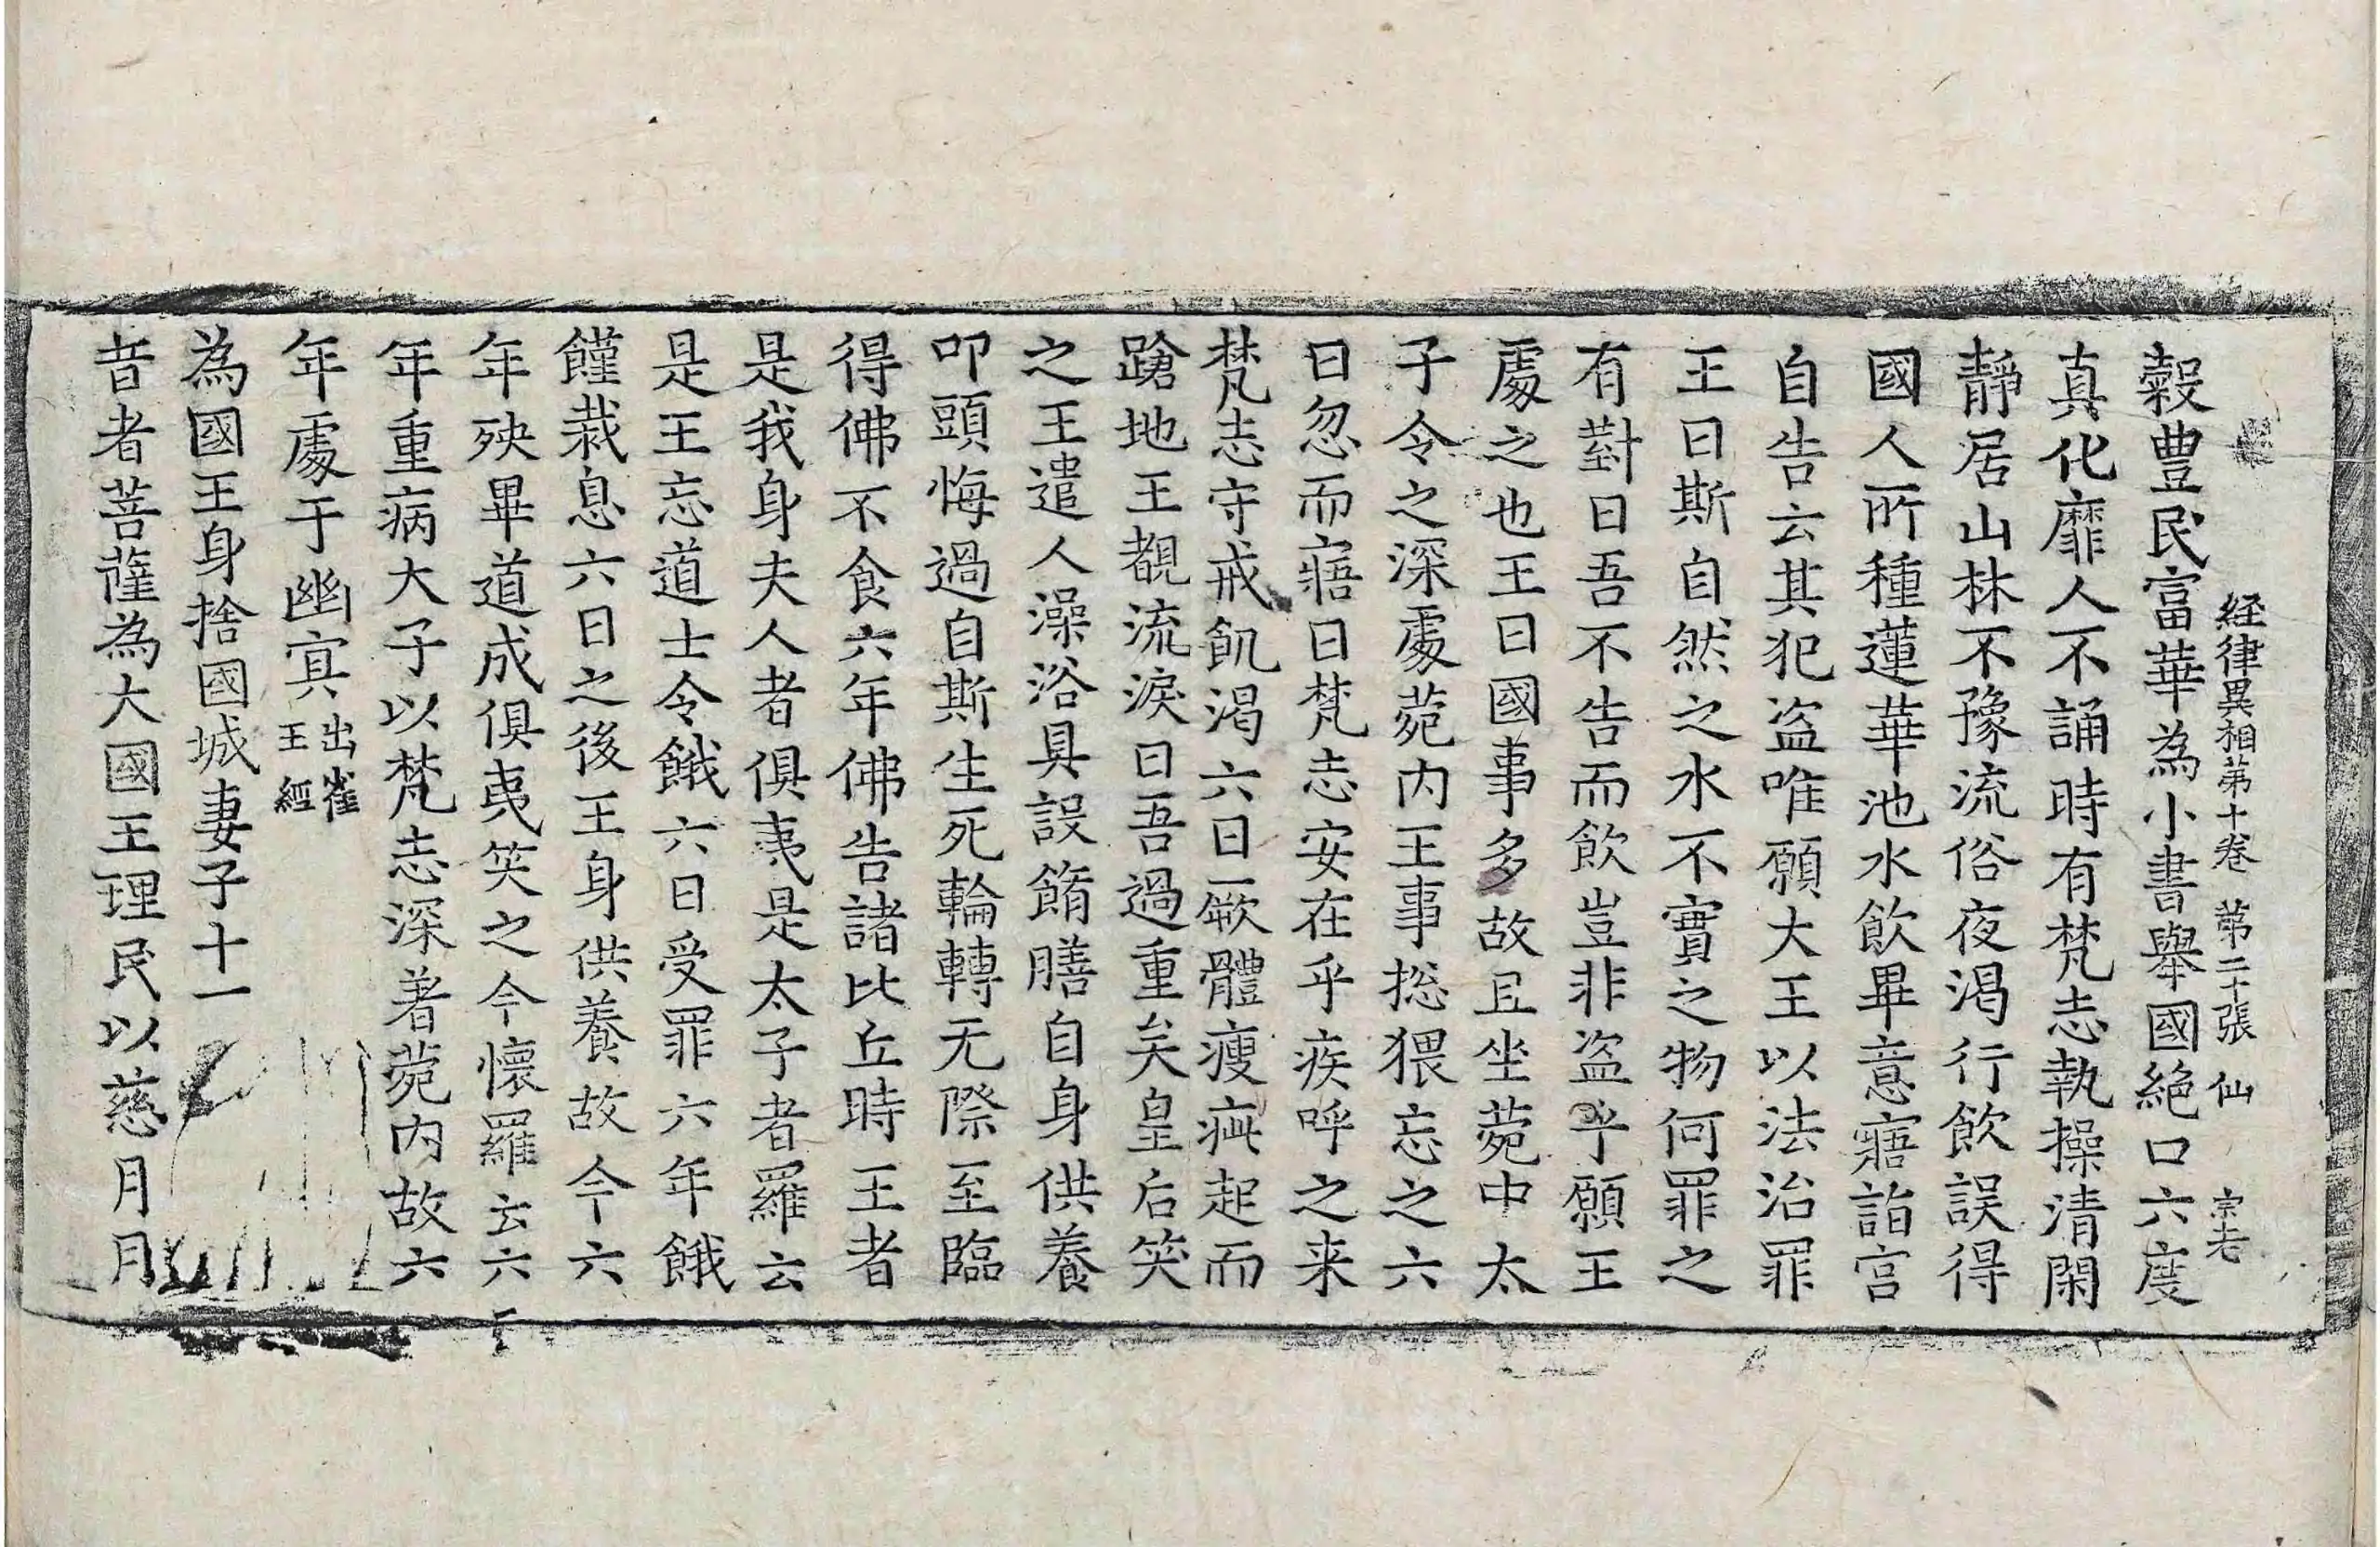 経律異相第十卷 第二十張 仙 宗老
穀豊民富華為小書舉國絕口六度
真化靡人不誦時有梵志執操清閑
靜居山林不豫流俗夜渴行飲誤得
國人所種蓮華池水飲畢意寤詣宮
自告云其犯盗唯願大王以法治罪
王曰斯自然之水不寶之物何罪之
有對曰吾不告而飲豈非盗乎願王
處之也王曰國事多故且坐菀中太
子令之深處菀内王事捴猥忘之六
日忽而寤曰梵志安在乎疾呼之来
梵志守戒飢渴六日厥體瘦疵起而
蹌地王覩流淚曰吾過重矣皇后笑
之王遣人澡浴具設餚膳自身供養
叩頭悔過自斯生死輪轉无際至臨
得佛不食六年佛告諸比丘時王者
是我身夫人者俱夷是太子者羅云
是王忘道士令餓六日受罪六年餓
饉栽息六日之後王身供養故今六
年殃畢道成俱夷笑之今懷羅云六
年重病大子以梵志深著菀内故六
年處于幽寘出雀王經
為國王身捨國城妻子十一
昔者菩薩為大國王理民以慈月月